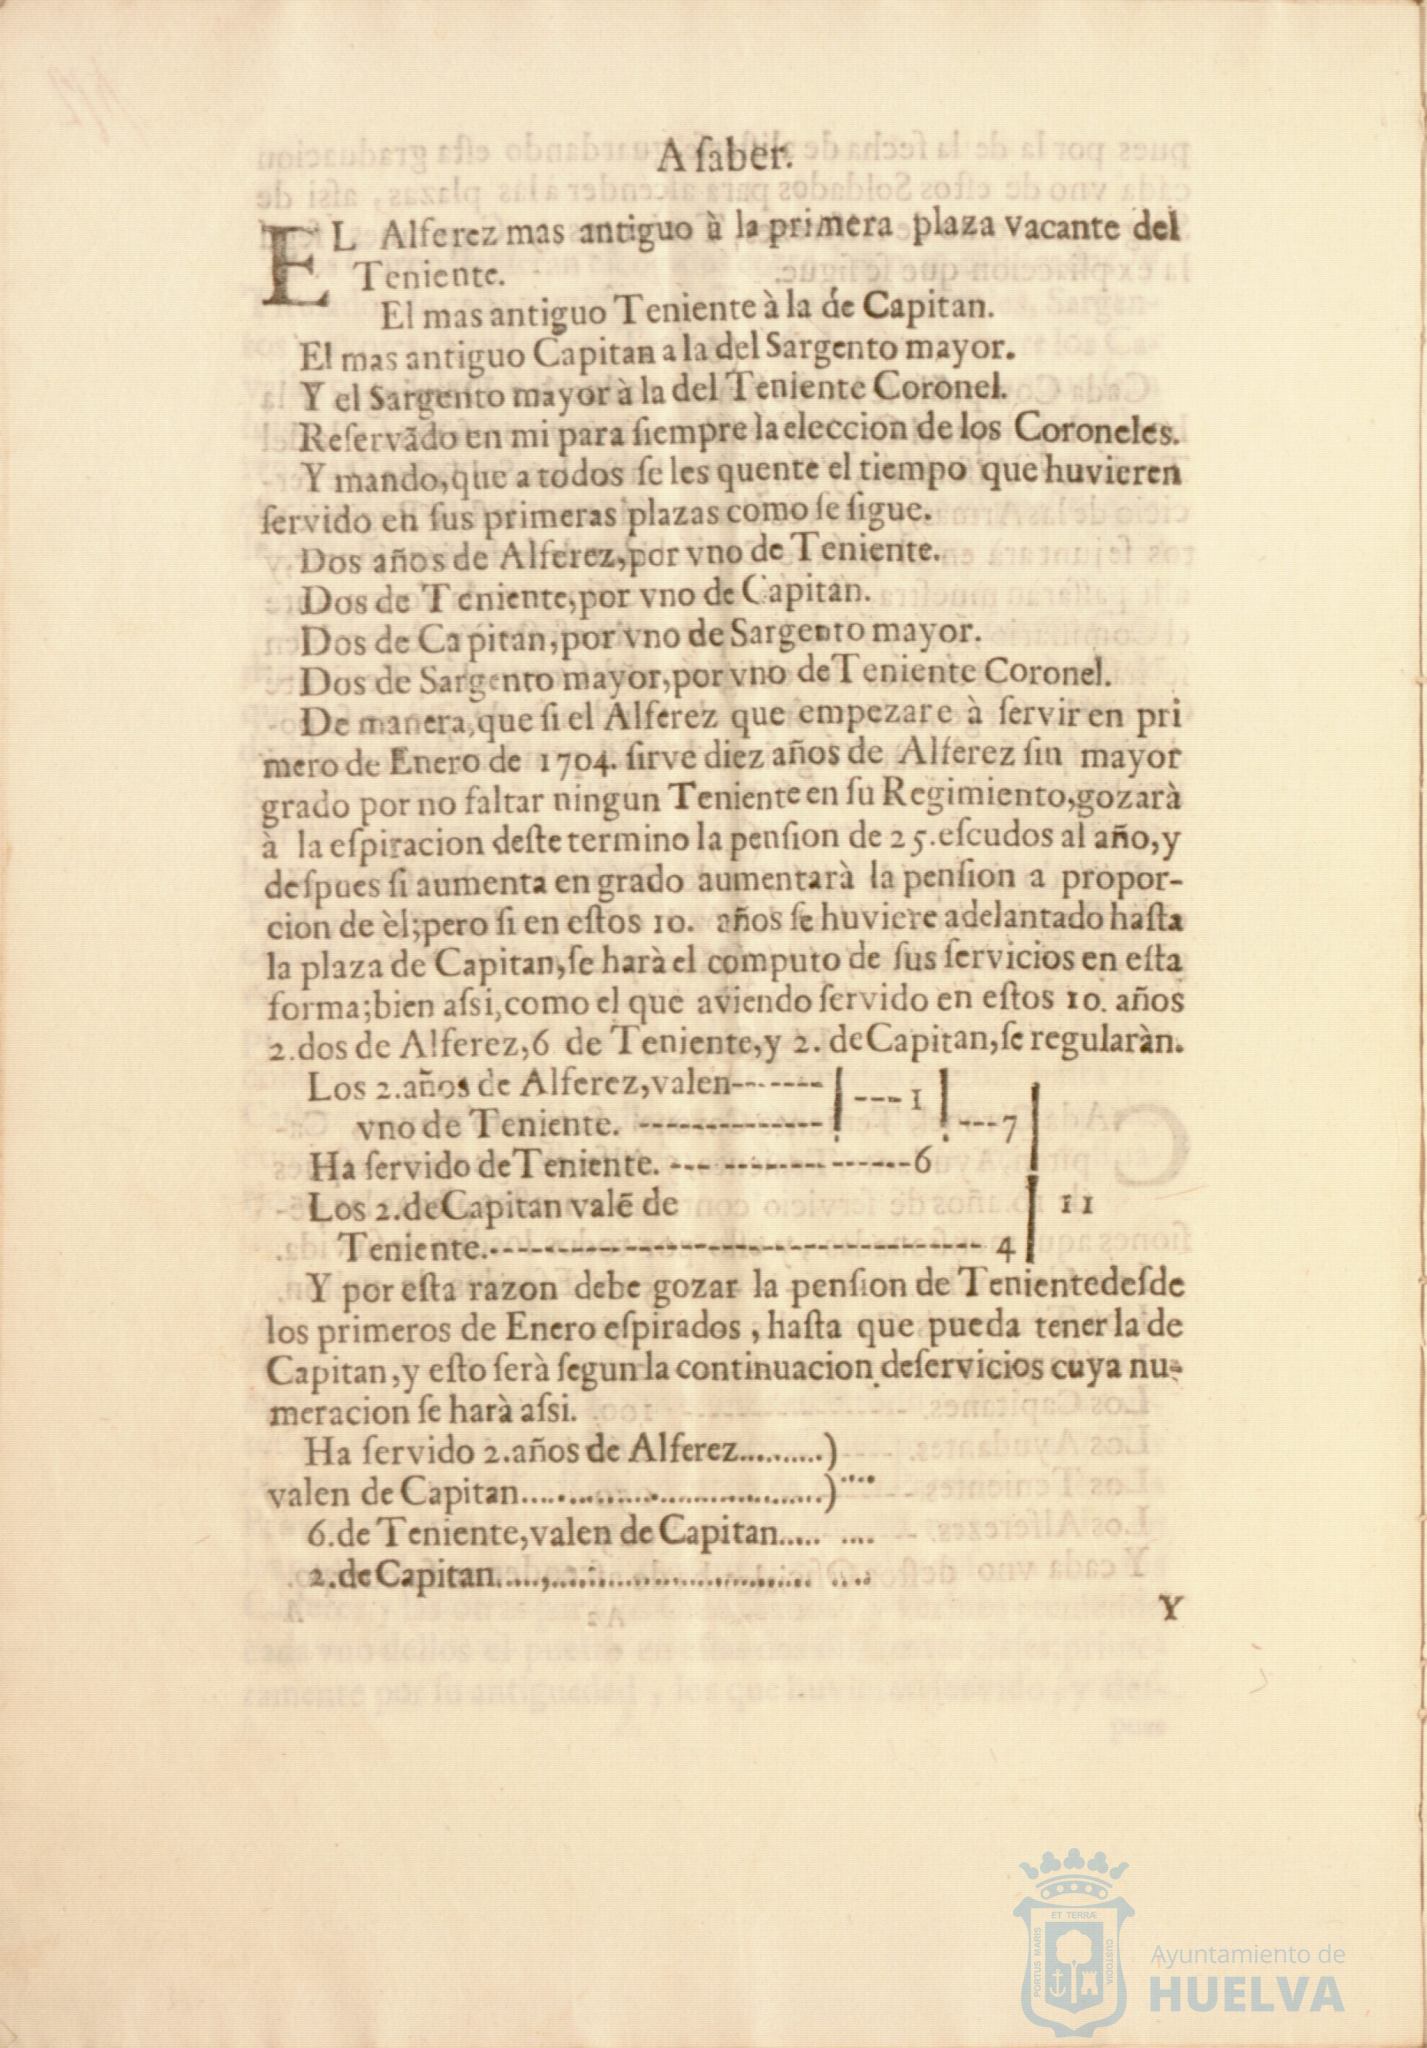 A ſaber.
EL Alferez mas antiguo à la primera plaza vacante del
Teniente.
El mas antiguo Teniente à la de Capitan.
El mas antiguo Capitan a la del Sargento mayor.
Y el Sargento mayor à la del Teniente Coronel.
Reſervãdo en mi para ſiempre la eleccion de los Coroneles.
Y mando, que a todos ſe les quente el tiempo que huvieren
ſervido en ſus primeras plazas como ſe ſigue.
Dos años de Alferez, por vno de Teniente.
Dos de Teniente, por vno de Capitan.
Dos de Capitan, por vno de Sargento mayor.
Dos de Sargento mayor, por vno de Teniente Coronel.
De manera, que ſi el Alferez que empezare à ſervir en pri
mero de Enero de 1704. ſirve diez años de Alferez ſin mayor
grado por no faltar ningun Teniente en ſu Regimiento, gozarà
à la eſpiracion deſte termino la penſion de 25. eſcudos al año, y
deſpues ſi aumenta en grado aumentarà la penſion a propor-
cion de èl; pero ſi en eſtos 10. años ſe huviere adelantado haſta
la plaza de Capitan, ſe harà el computo de ſus ſervicios en eſta
forma; bien aſsi, como el que aviendo ſervido en eſtos 10. años
2. dos de Alferez, 6 de Teniente, y 2. de Capitan, ſe regularàn.
Los 2. años de Alferez, valen------- | ---1
vno de Teniente. -------------- | ---7
Ha ſervido de Teniente. --- --------- ------6
Los 2. de Capitan valē de 11
Teniente.------------------------------------ 4
Y por eſta razon debe gozar la penſion de Teniente deſde
los primeros de Enero eſpirados, haſta que pueda tener la de
Capitan, y eſto ſerà ſegun la continuacion de ſervicios cuya nu-
meracion ſe harà aſsi.
Ha ſervido 2. años de Alferez.........)
valen de Capitan..............................)....
6. de Teniente, valen de Capitan..... ....
2. de Capitan............................... ....
Y
ET TERRÆ
PORTUS MARIS
CUSTODIA
Ayuntamiento de
HUELVA